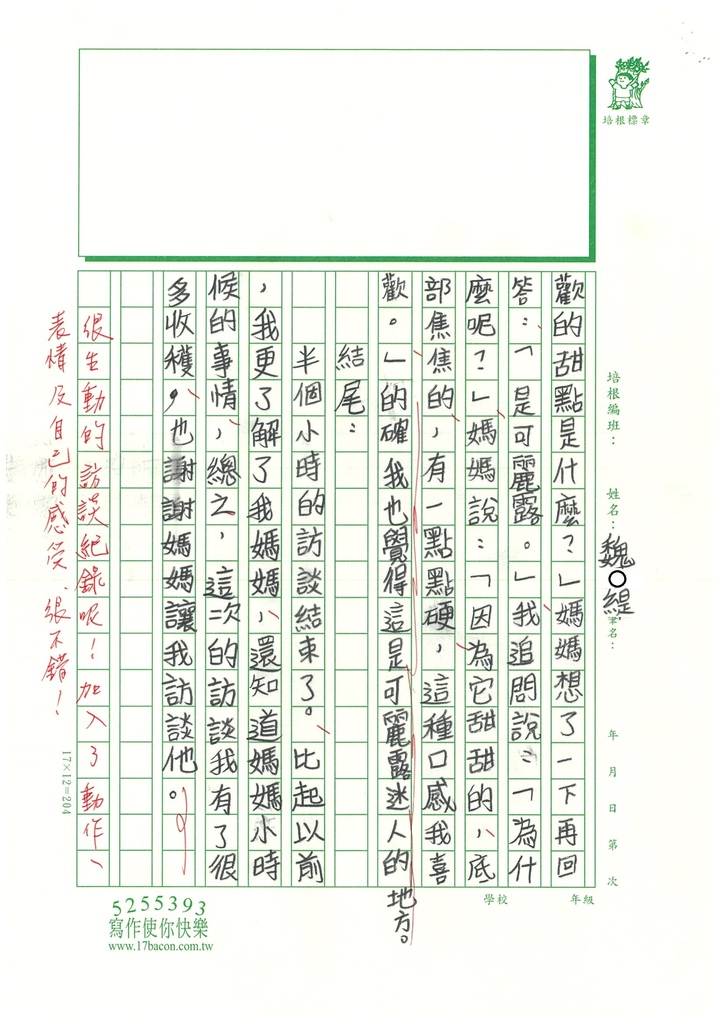 培根標章
培根編班：　姓名：魏○緹　筆名：　年　月　日　第　次
歡的甜點是什麼？」媽媽想了一下再回
答：「是可麗露。」我追問說：「為什
麼呢？」媽媽說：「因為它甜甜的，底
部焦焦的，有一點點硬，這種口感我喜
歡。」的確我也覺得這是可麗露迷人的地方。
結尾：
半個小時的訪談結束了。比起以前
，我更了解了我媽媽，還知道媽媽小時
候的事情，總之，這次的訪談我有了很
多收穫，也謝謝媽媽讓我訪談他。
很生動的訪談紀錄呢！加入了動作、
表情及自己的感受，很不錯！
17×12=204
學校　年級
5255393
寫作使你快樂
www.17bacon.com.tw